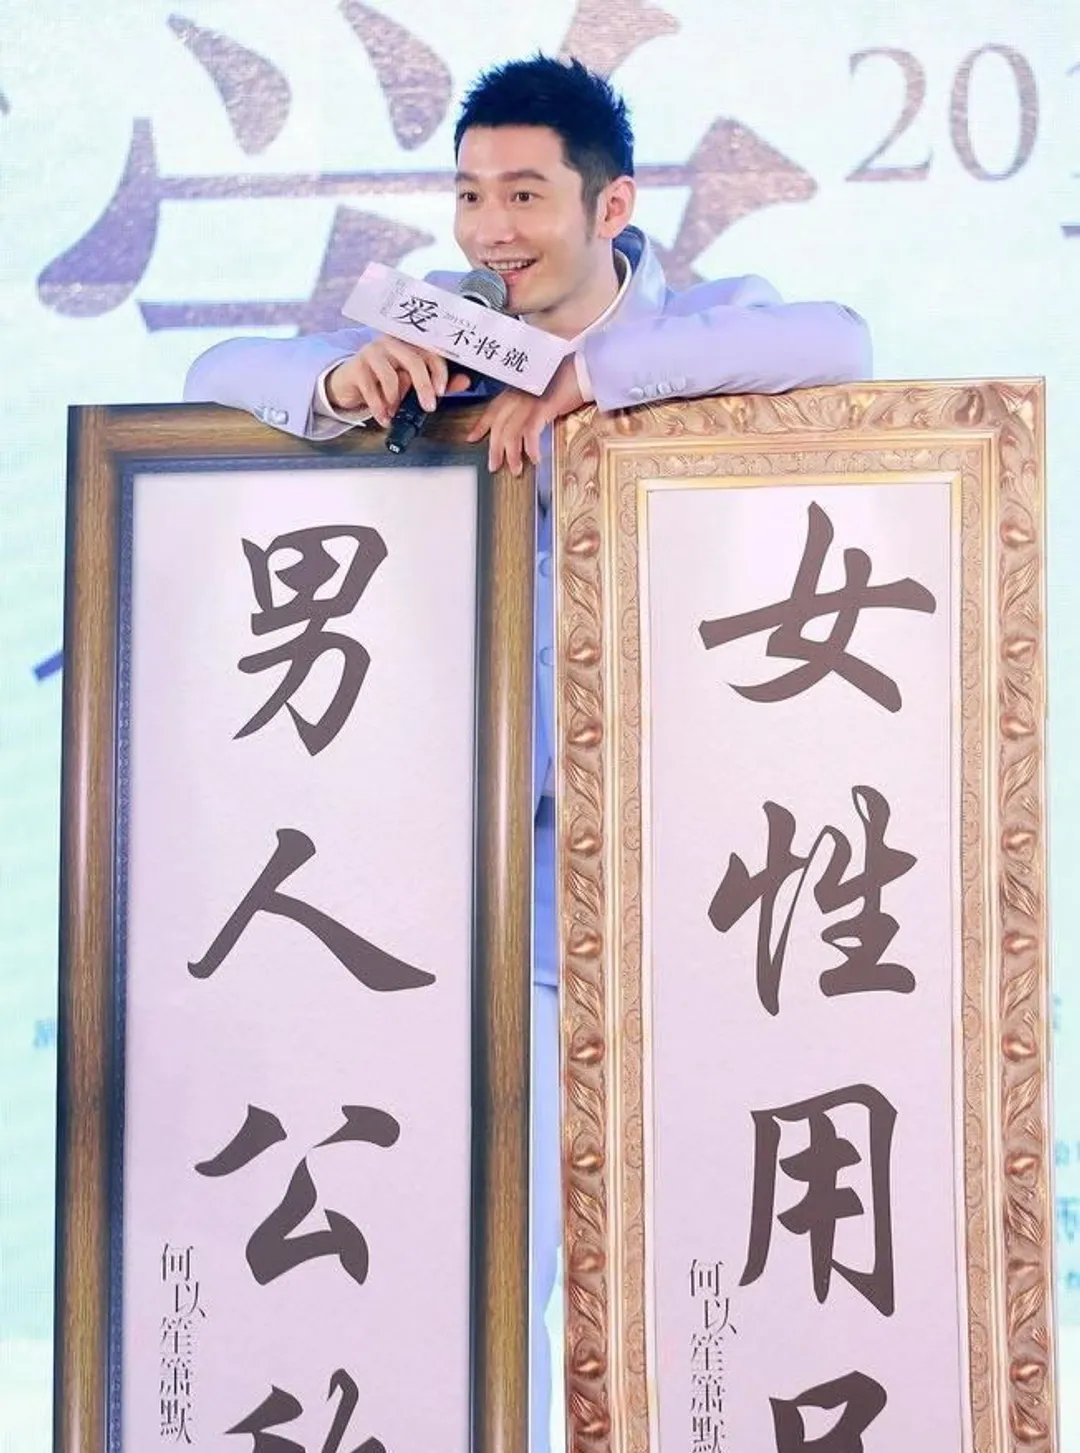 学
201
爱
不将就
男人公
何以笙箫默
女性用
何以笙箫默